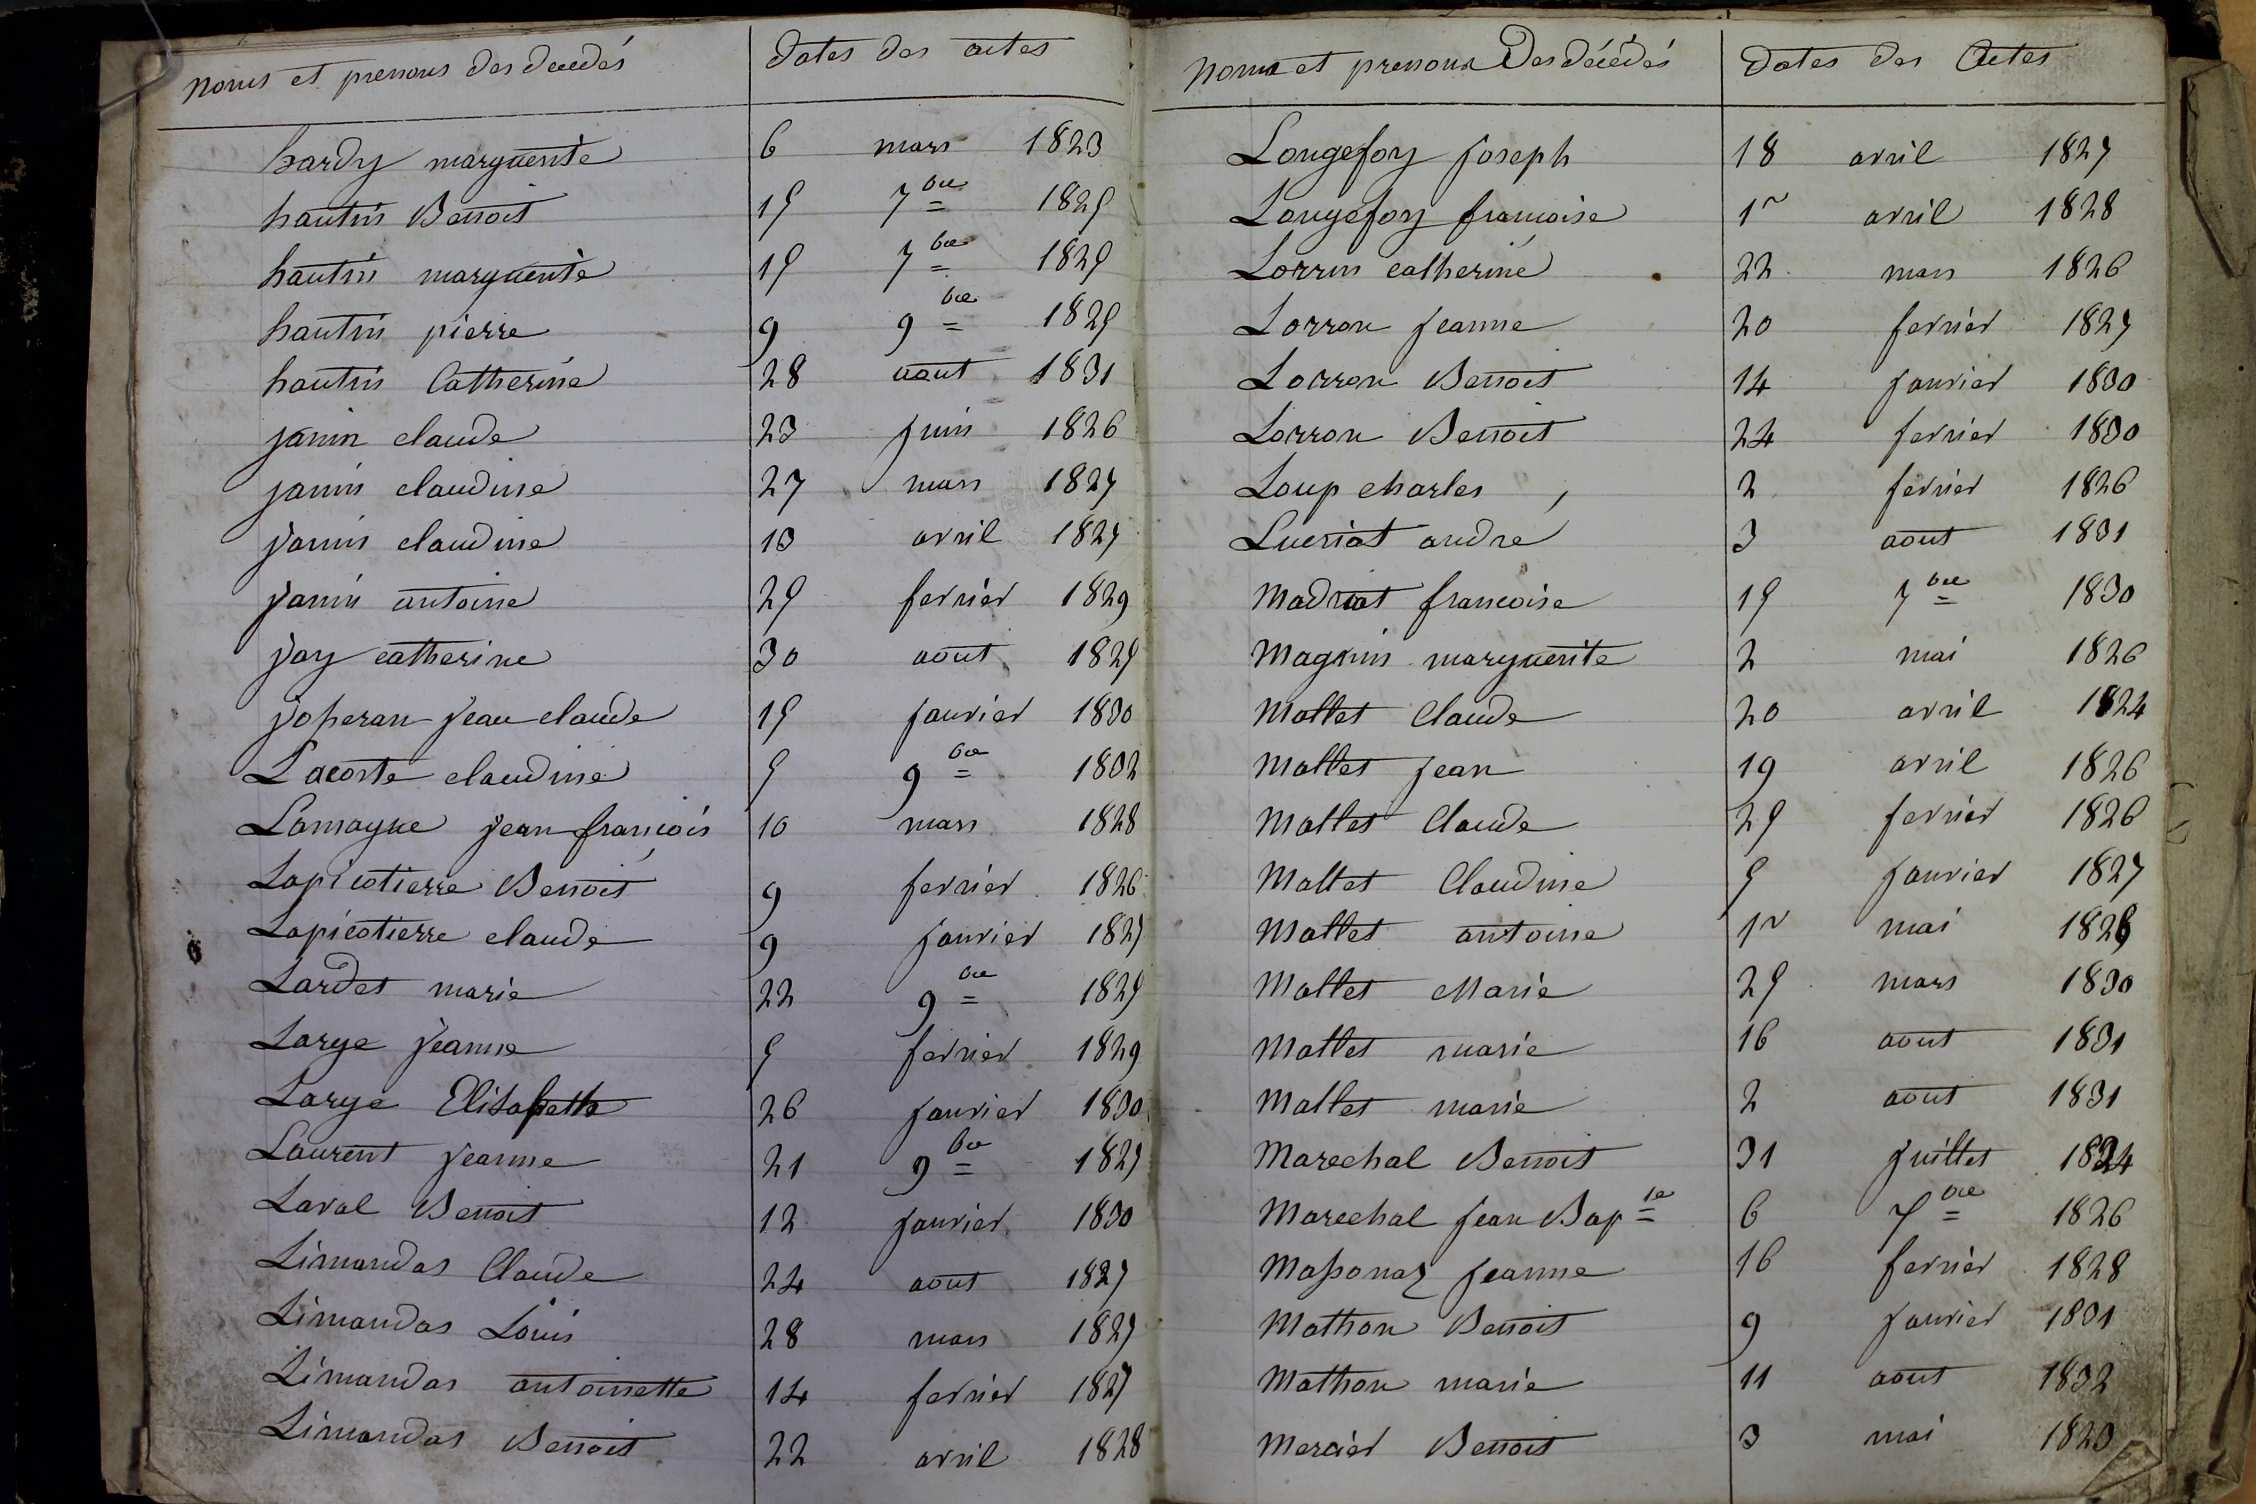 Noms et prenoms des décédés
Dates des actes
hardy marguerite 6 mars 1823
hautin Benoit 15 7bre 1825
hautin marguerite 15 7bre 1825
hautin pierre 9 9bre 1825
hautin Catherine 28 aout 1831
janin claude 23 juin 1826
janin claudine 27 mars 1827
janin claudine 13 avril 1827
janin antoine 25 fevrier 1829
jay catherine 30 aout 1825
joperan jean claude 15 janvier 1830
Lacoste claudine 5 9bre 1832
Lamagne jean françois 10 mars 1828
Lapicotierre Benoit 9 fevrier 1826
Lapicotierre claude 9 janvier 1827
Lardet marie 22 9bre 1825
Large jeanne 5 fevrier 1829
Large Elisabette 26 janvier 1830
Laurent jeanne 21 9bre 1825
Laval Benoit 12 janvier 1830
Limandas Claude 24 aout 1827
Limandas Louis 28 mars 1827
Limandas antoinette 14 fevrier 1827
Limandas Benoit 22 avril 1828
Noms et prenoms Des décédés
Dates des Actes
Longefoy joseph 18 avril 1827
Longefoy francoise 1r avril 1828
Lorrin catherine 22 mars 1826
Lorron jeanne 20 fevrier 1827
Lorron Benoit 14 janvier 1830
Lorron Benoit 24 fevrier 1830
Loup charles 2 fevrier 1826
Lueriat andre 3 aout 1831
Madriat francoise 15 7bre 1830
Magnin marguerite 2 mai 1826
Mallet Claude 20 avril 1824
Mallet jean 19 avril 1826
Mallet Claude 25 fevrier 1826
Mallet Claudine 5 janvier 1827
Mallet antoine 1r mai
Mallet Marie 25 mars 1830
Mallet marie 16 aout 1831
Mallet marie 2 aout 1831
Marechal Benoit 31 juillet 1824
Marechal jean Bapte 6 7bre 1826
Massonaz jeanne 16 fevrier 1828
Mathon Benoit 9 janvier 1831
Mathon marie 11 aout 1832
Mercier Benoit 3 mai 1823